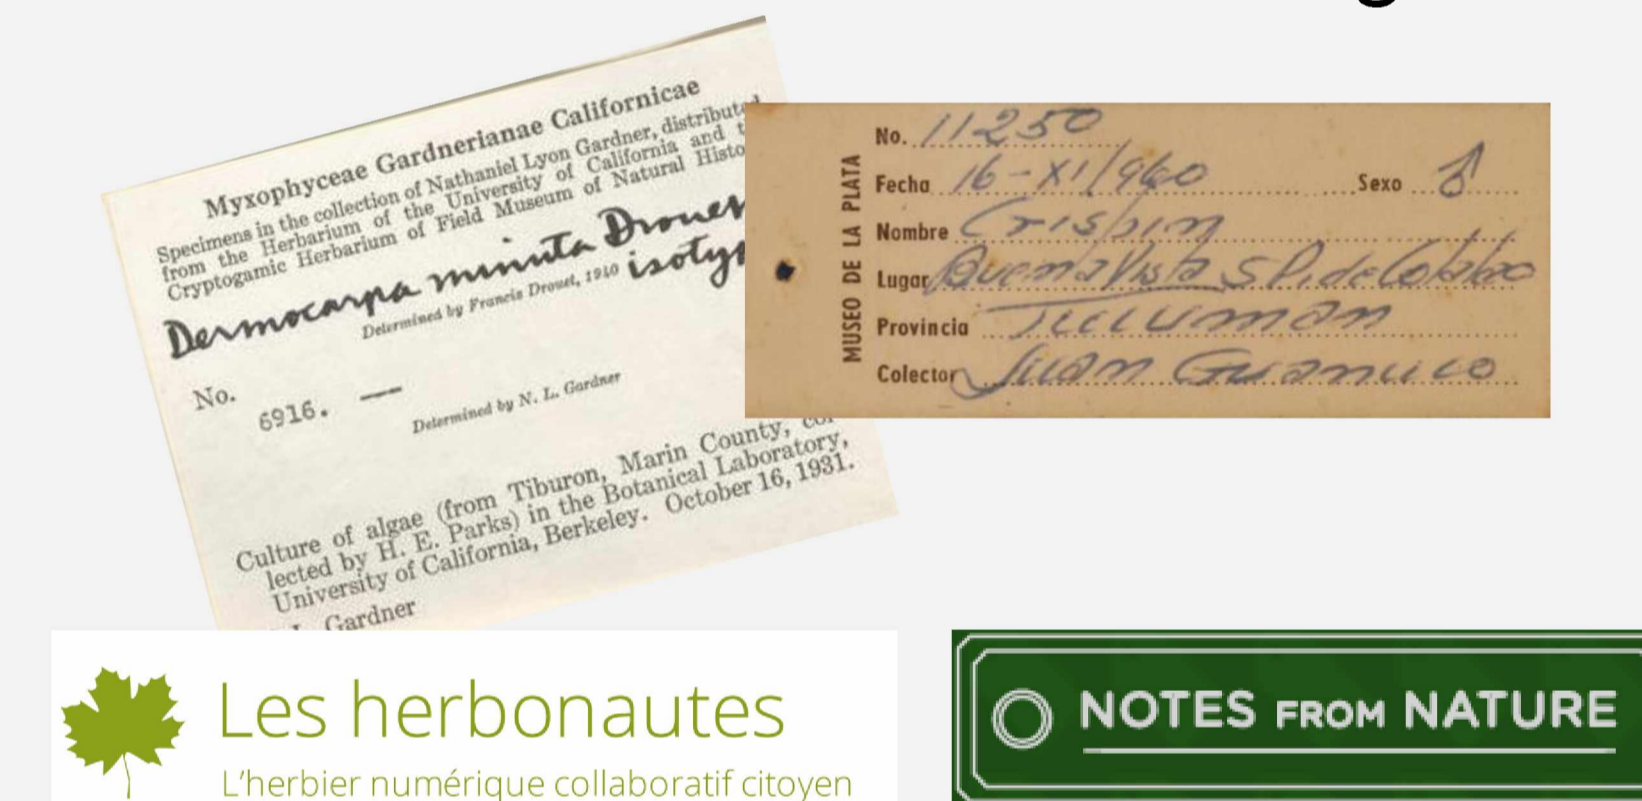 Myxophyceae Gardnerianae Californicae
Specimens in the collection of Nathaniel Lyon Gardner, distributed
from the Herbarium of the University of California and
Cryptogamic Herbarium of Field Museum of Natural Histo
Dermocarpa minuta Drouet
isotyp
Determined by Francis Drouet, 1940
No.
6916. —
Determined by N. L. Gardner
Culture of algae (from Tiburon, Marin County, col
lected by H. E. Parks) in the Botanical Laboratory,
University of California, Berkeley. October 16, 1931.
Gardner
MUSEO DE LA PLATA
No. 11250
Fecha 16-XI/960 Sexo ♂
Nombre Crispin
Lugar Buena Vista S. P. de Colalao
Provincia Tucuman
Colector Juan Guanuco
Les herbonautes
L'herbier numérique collaboratif citoyen
NOTES FROM NATURE